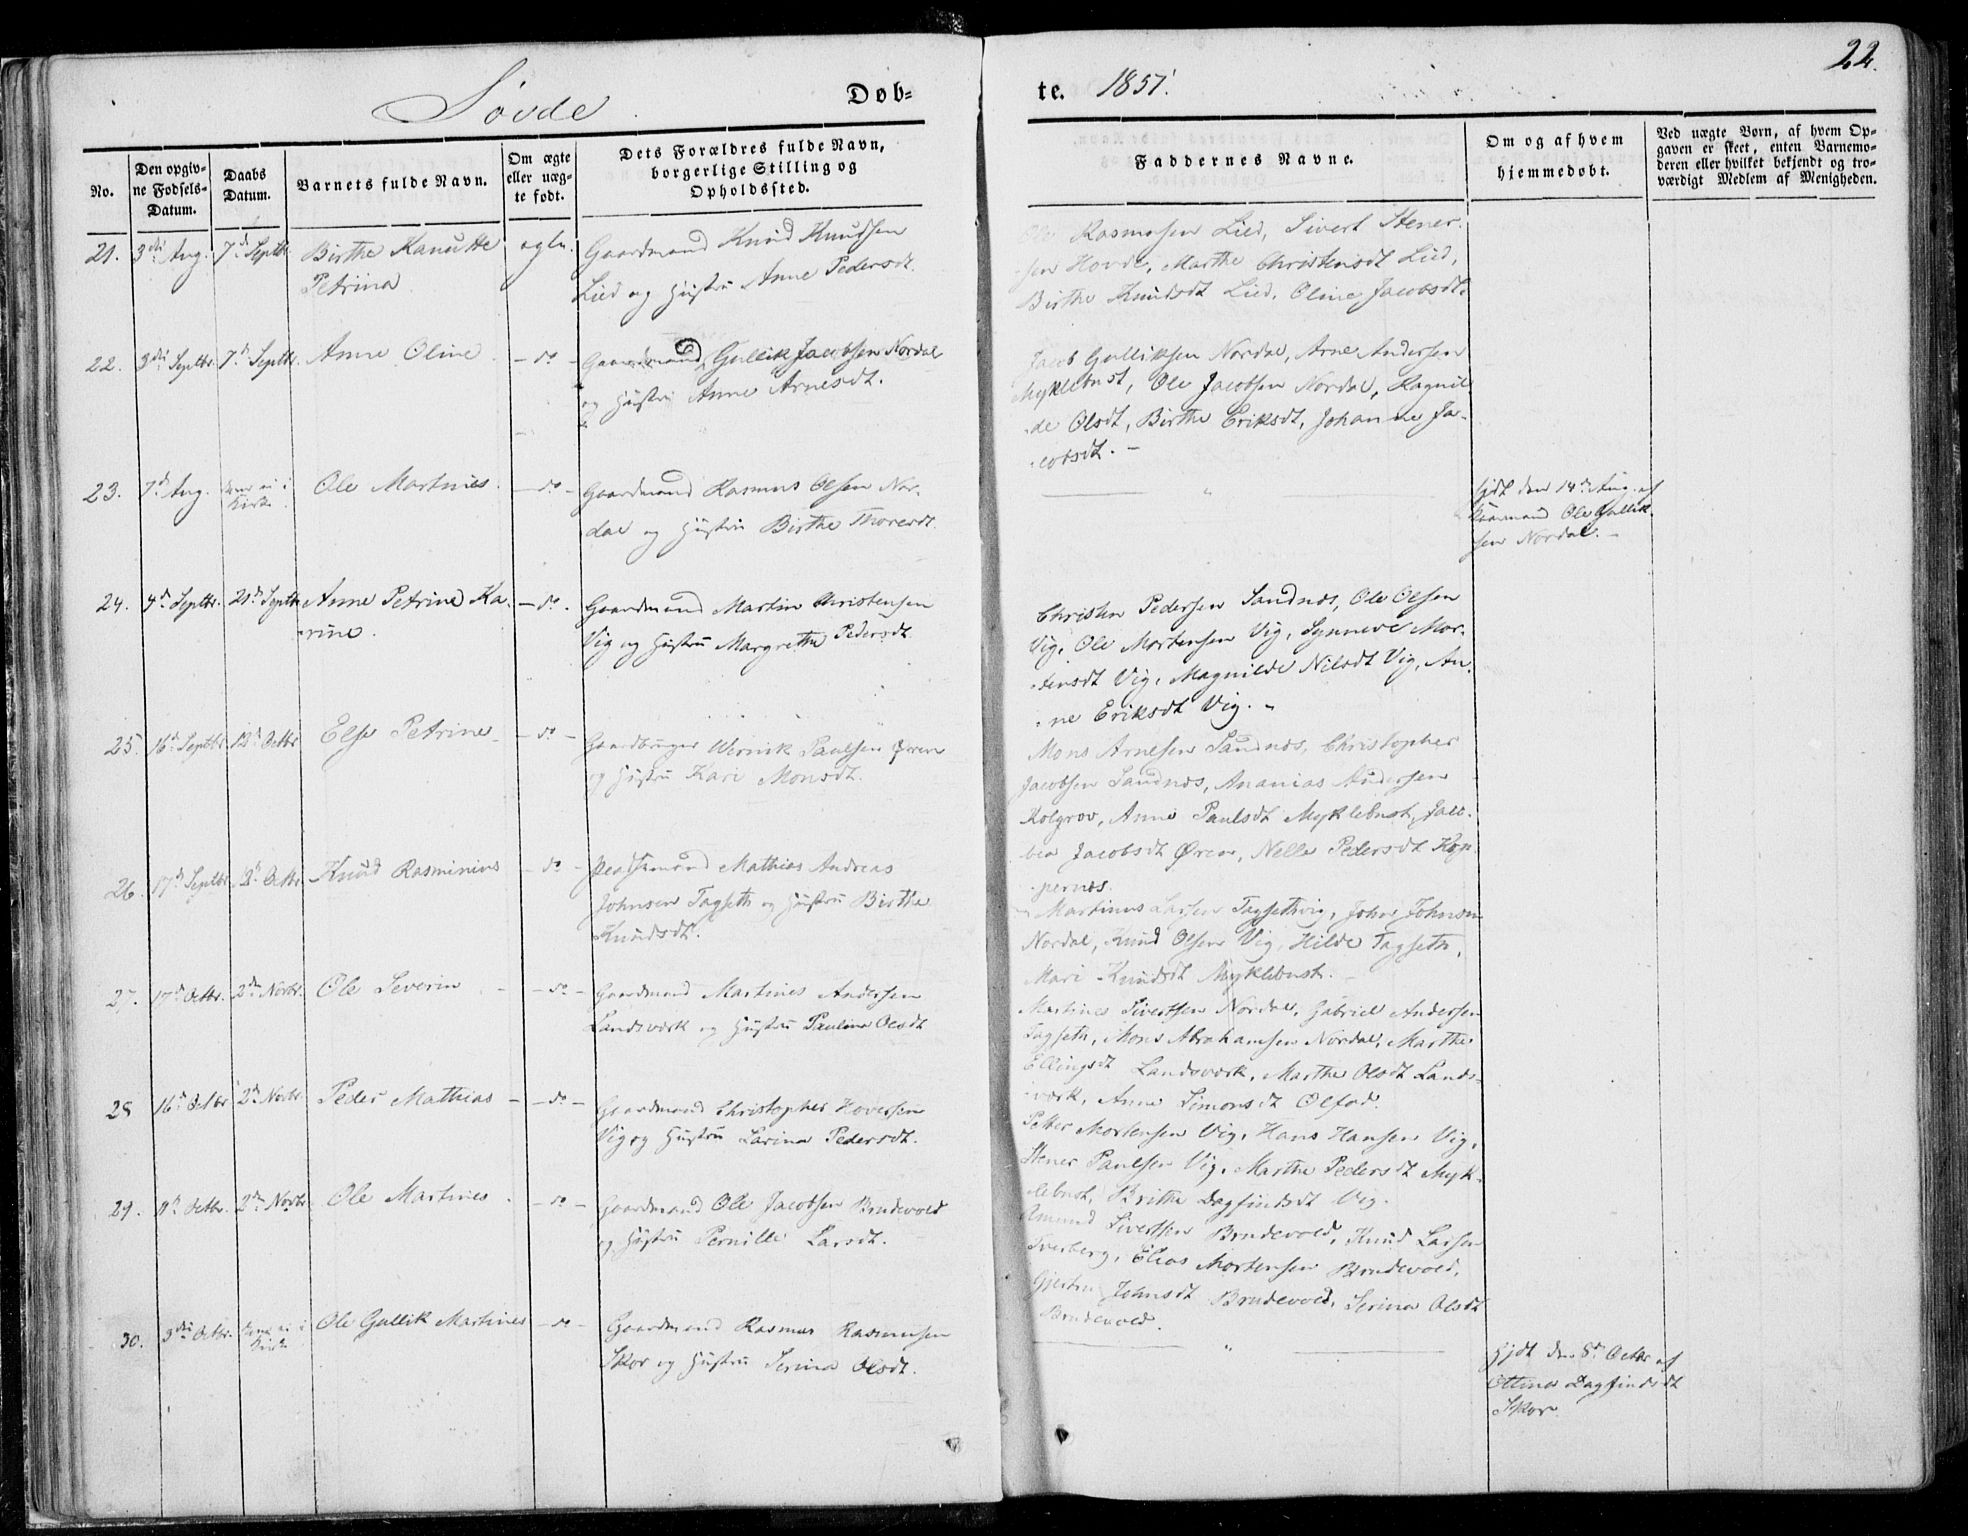 Søvde
Døb=
te. 1851.
22.
No.
Den opgiv=
ne Fødsels=
Datum.
Daabs
Datum.
Barnets fulde Navn.
Om ægte
eller uæg=
te født.
Dets Forældres fulde Navn,
borgerlige Stilling og
Opholdssted.
Faddernes Navne.
Om og af hvem
hjemmedøbt.
Ved uægte Børn, af hvem Op=
gaven er skeet, enten Barnemo=
deren eller hvilket bekjendt og tro=
værdigt Medlem af Menigheden.
21. 3die Aug. 7d Septbr. Birthe Kanutte
Petrina
Gaardmand Knud Knudsen
Lied og Hustru Anne Pedersdt.
Rasmusen Lied, Sivert Stener-
sen Hovde, Marthe Christensdt Lied,
Birthe Knudsdt Lied, Oline Jacobsdt.
22. 3die Septbr. 7d Septbr. Anne Oline - do - Gaardmand Gullik Jacobsen Nordal
og Hustru Anne Arnesdt.
Jacob Gulliksen Nordal, Arne Andersen
Myklebust, Ole Jacobsen Nordal, Ragnil
-de Olsdt, Birthe Eriksdt, Johanne Ja-
-cobsdt. -
23. 7d Aug. ei i
Kirke
Ole Martinus - do - Gaardmand Rasmus Olsen Nor-
dal og Hustru Birthe Thoresdt.
Hjdt den 14de Aug. af
Ole Gullik-
sen Nordal. -
24. 4d Septbr. 21d Septbr. Anne Petrine Ka-
-rine.
- do - Gaardmand Martin Christensen
Vig og Hustru Margrethe Pedersdt.
Christen Pedersen Sandnes, Ole Olsen
Vig, Ole Mortensen Vig, Synneve Mor-
-tensdt Vig, Magnilde Nilsdt Vig, An-
-ne Eriksdt Vig. -
25. 16d Septbr. 12d Octbr. Else Petrine - do - Gaardbruger Wernik Paulsen Øren
og Hustru Kari Monsdt.
Mons Arnesen Sandnes, Christopher
Jacobsen Sandnes, Ananias Andersen
Kolgrov, Anne Paulsdt Myklebust, Jaco-
bea Jacobsdt Øren, Nelle Pedersdt Kop-
-pernes.
26. 17d Septbr. 12d Octbr. Knud Rasminius - do - Pladsmand Mathias Andreas
Johnsen Tagseth og Hustru Birthe
Knudsdt.
Martinus Larsen Tagsethvig, John Johnsen
Nordal, Knud Olsen Vig, Hilde Tagseth,
Mari Knudsdt Myklebust. -
27. 17d Octbr. 2den Novbr. Ole Severin - do - Gaardmand Martines Andersen
Landsværk og Hustru Pauline Olsdt
Martines Sivertsen Nordal, Gabriel Andersen
Tagseth, Mons Abrahamsen Nordal, Marthe
Ellingsdt Landsværk, Marthe Olsdt Lands-
-værk, Anne Simonsdt
28 16d Octbr 2den Novbr. Peder Mathias - do - Gaardmand Christopher Hoversen
Vig og Hustru Larina Pedersdt.
Petter Mortensen Vig, Hans Hansen Vig,
Stener Paulsen Vig, Marthe Pedersdt Myk-
-lebust, Brithe Dagfindsdt Vig.
29. Octbr. 2den Novbr. Ole Martines - do - Gaardmand Ole Jacobsen Brudevold
og Hustru Pernille Larsdt.
Amund Sivertsen Brudevold, Knud Larsen
Tverberg, Elias Mortensen Brudevold,
Johnsdt Brudevold, Serina Olsdt
Brudevold.
30. 3die Octbr. ei i
Kirke
Ole Gullik Martines - do - Gaardmand Rasmus Rasmusen
Skor og Hustru Serina Olsdt.
Hjdt den 8d Octbr af
Dagfindsdt
Skor